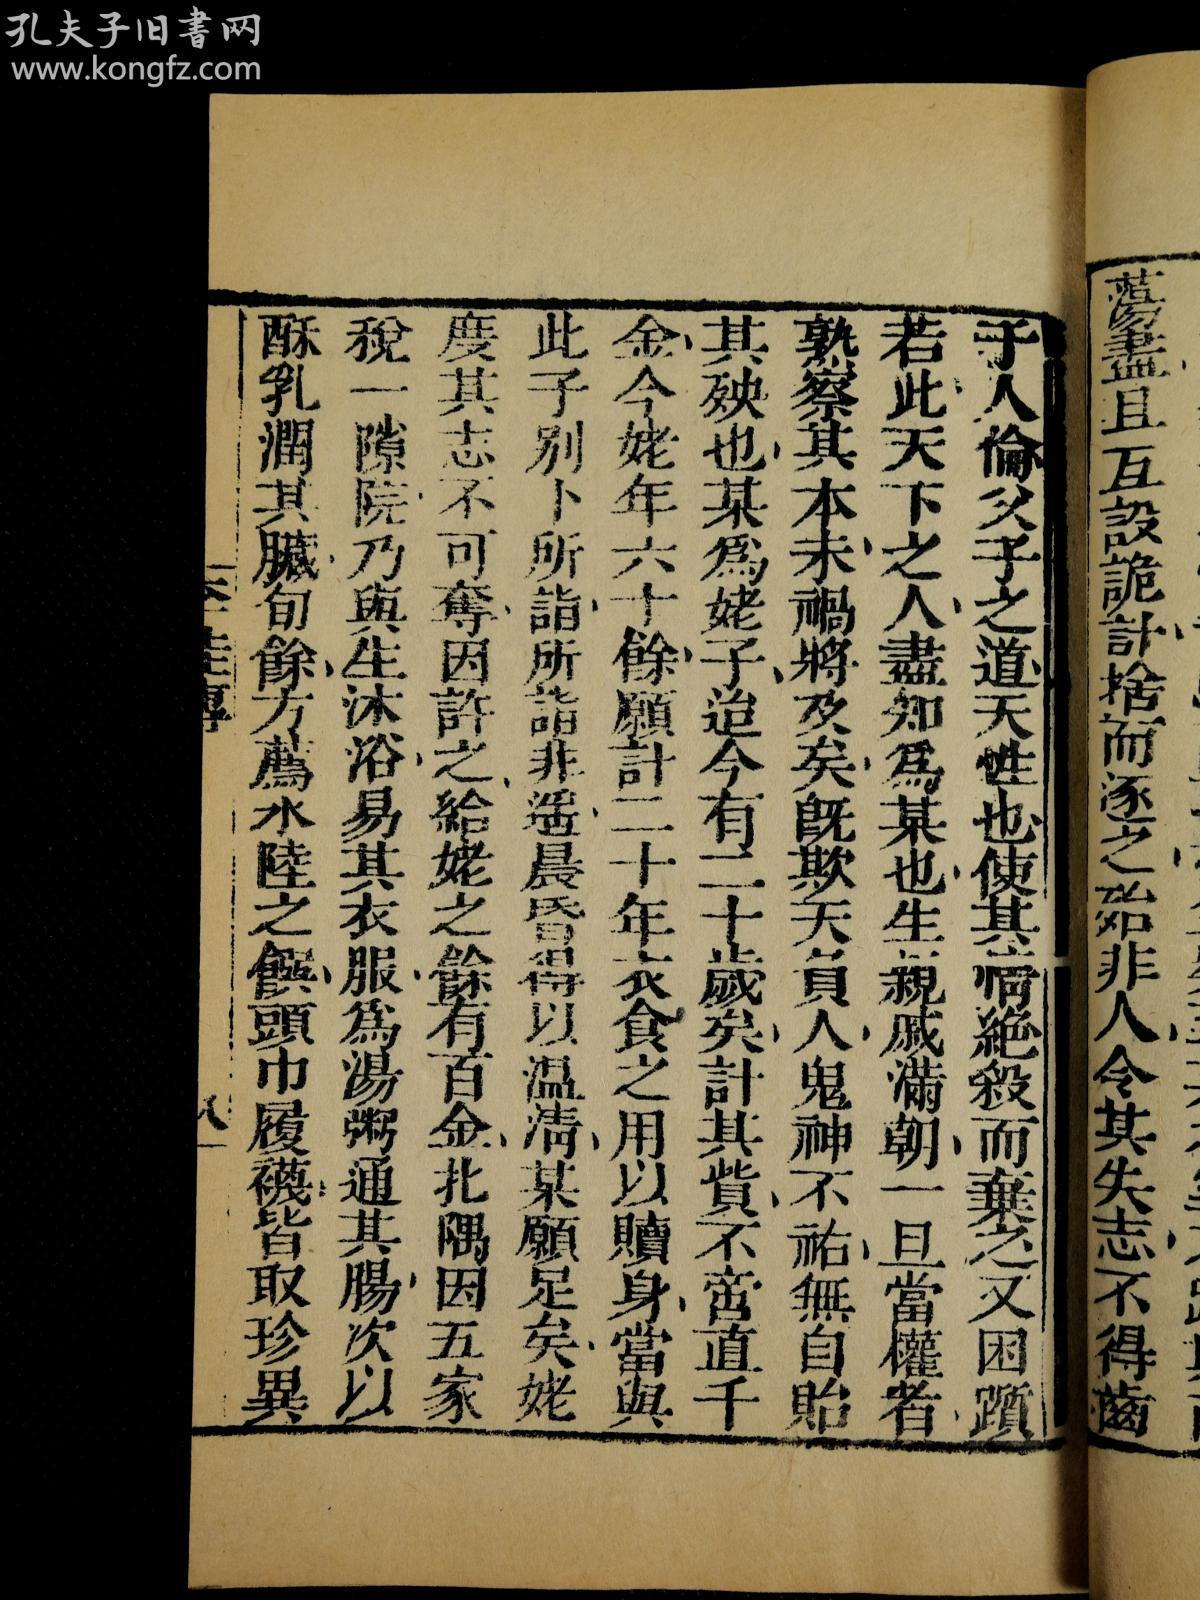 孔夫子旧書网
www.kongfz.com
蕩盡且互設詭計捨而逐之殆非人令其失志不得齒
于人倫父子之道天性也使其情絶殺而棄之又困躓
若此天下之人盡知爲某也生親戚滿朝一旦當權者
熟察其本末禍將及矣旣欺天負人鬼神不祐無自貽
其殃也某爲姥子迨今有二十歲矣計其貲不啻直千
金今姥年六十餘願計二十年衣食之用以贖身當與
此子別卜所詣所詣非遥晨昏得以温凊某願足矣姥
度其志不可奪因許之給姥之餘有百金北隅因五家
稅一隙院乃與生沐浴易其衣服爲湯粥通其腸次以
酥乳潤其臟旬餘方薦水陸之饌頭巾履襪皆取珍異
八